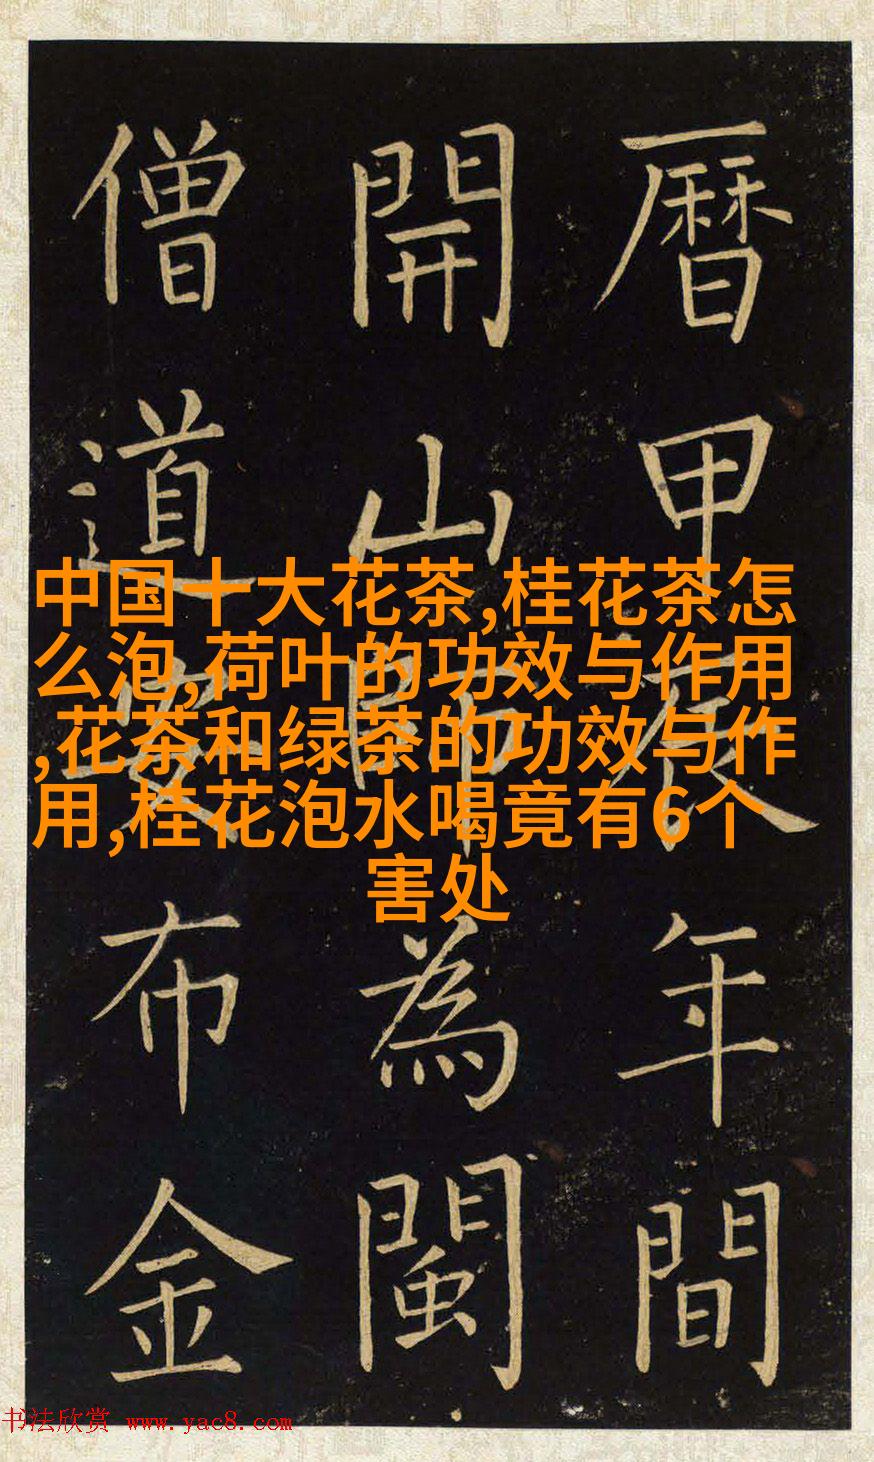 暦甲辰年間
開山師為閩
僧道安布金
中国十大花茶,桂花茶怎
么泡,荷叶的功效与作用
,花茶和绿茶的功效与作
用,桂花泡水喝竟有6个
害处
书法欣赏 www.yac8.com